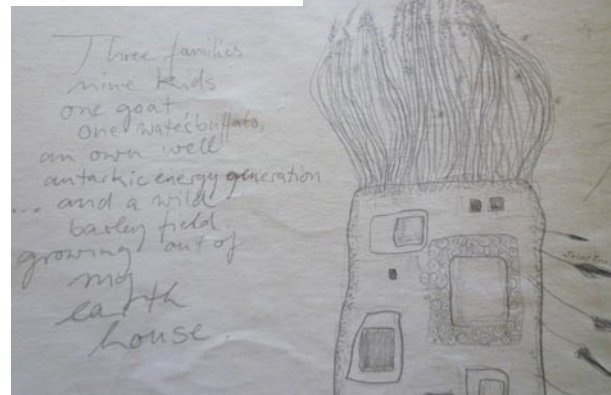 Three families
nine kids
one goat
one waterbuffalo,
an own well
autarkic energy generation
... and a wild
barley field
growing out of
my
earth
house.